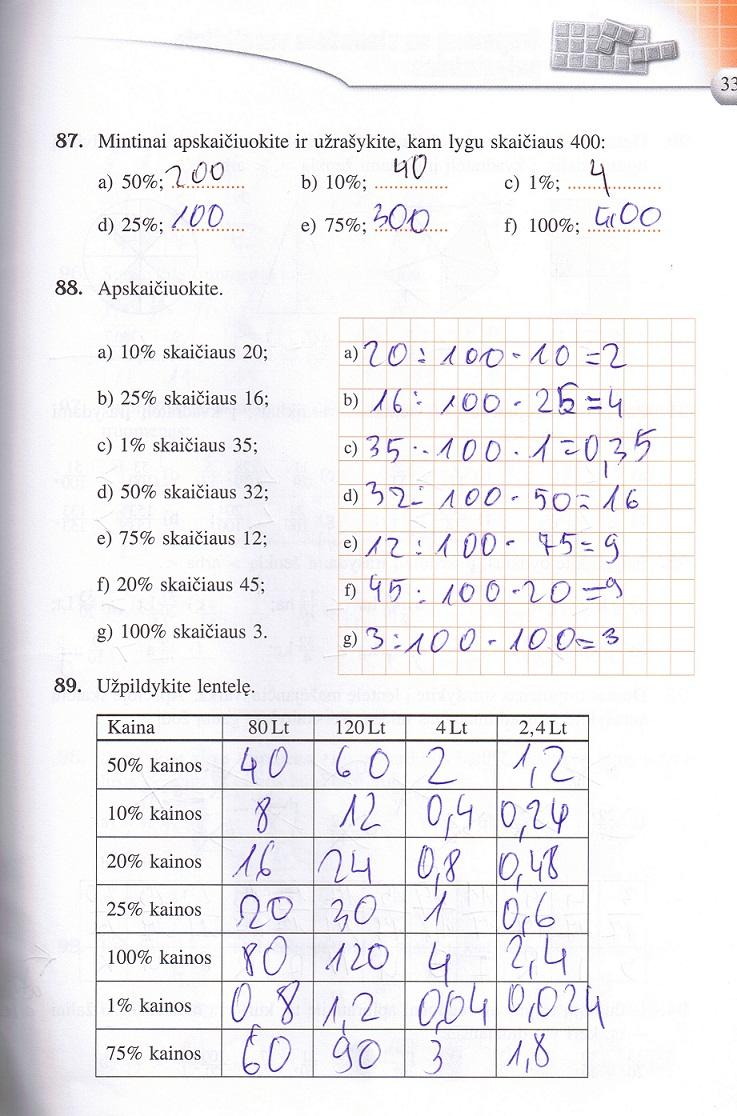 33
87. Mintinai apskaičiuokite ir užrašykite, kam lygu skaičiaus 400:
a) 50%; 200 b) 10%; 40 c) 1%; 4
d) 25%; 100 e) 75%; 300 f) 100%; 400
88. Apskaičiuokite.
a) 10% skaičiaus 20; a) 20 : 100 · 10 = 2
b) 25% skaičiaus 16; b) 16 : 100 · 25 = 4
c) 1% skaičiaus 35; c) 35 : 100 · 1 = 0,35
d) 50% skaičiaus 32; d) 32 : 100 · 50 = 16
e) 75% skaičiaus 12; e) 12 : 100 · 75 = 9
f) 20% skaičiaus 45; f) 45 : 100 · 20 = 9
g) 100% skaičiaus 3. g) 3 : 100 · 100 = 3
89. Užpildykite lentelę.
Kaina 80 Lt 120 Lt 4 Lt 2,4 Lt
50% kainos 40 60 2 1,2
10% kainos 8 12 0,4 0,24
20% kainos 16 24 0,8 0,48
25% kainos 20 30 1 0,6
100% kainos 80 120 4 2,4
1% kainos 0 8 1,2 0,04 0,024
75% kainos 60 90 3 1,8